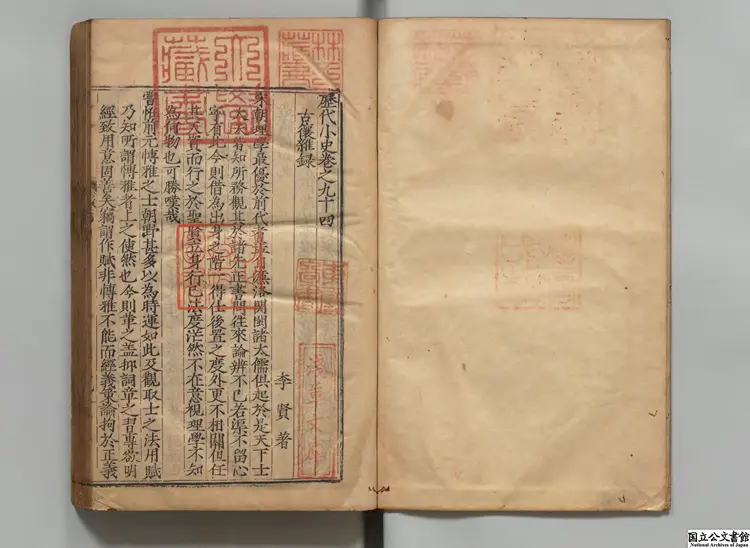 歷代小史卷之九十四
古穰雜録
李賢著
宋朝理學最優於前代者蓋有濂洛関閩諸大儒俱起於是天下士
大夫皆知所務觀其於諸先正書問往來論辨不已若渠不留心
寧有此今則借為出身之階一得仕後置之度外更不相關但任
其天資而行之於聖賢立身行已法度茫然不在意視理學不知
為何物也可勝嘆哉
嘗怪前元博雅之士朝野甚多以為時運如此及觀取士之法用賦
乃知所謂博雅者上之使然也今則革之盖抑詞章之習專欲明
經致用意固善矣獨謂作賦非博雅不能而經義策論拘於正義
林氏藏書
淺草文庫
国立公文書館
National Archives of Japan